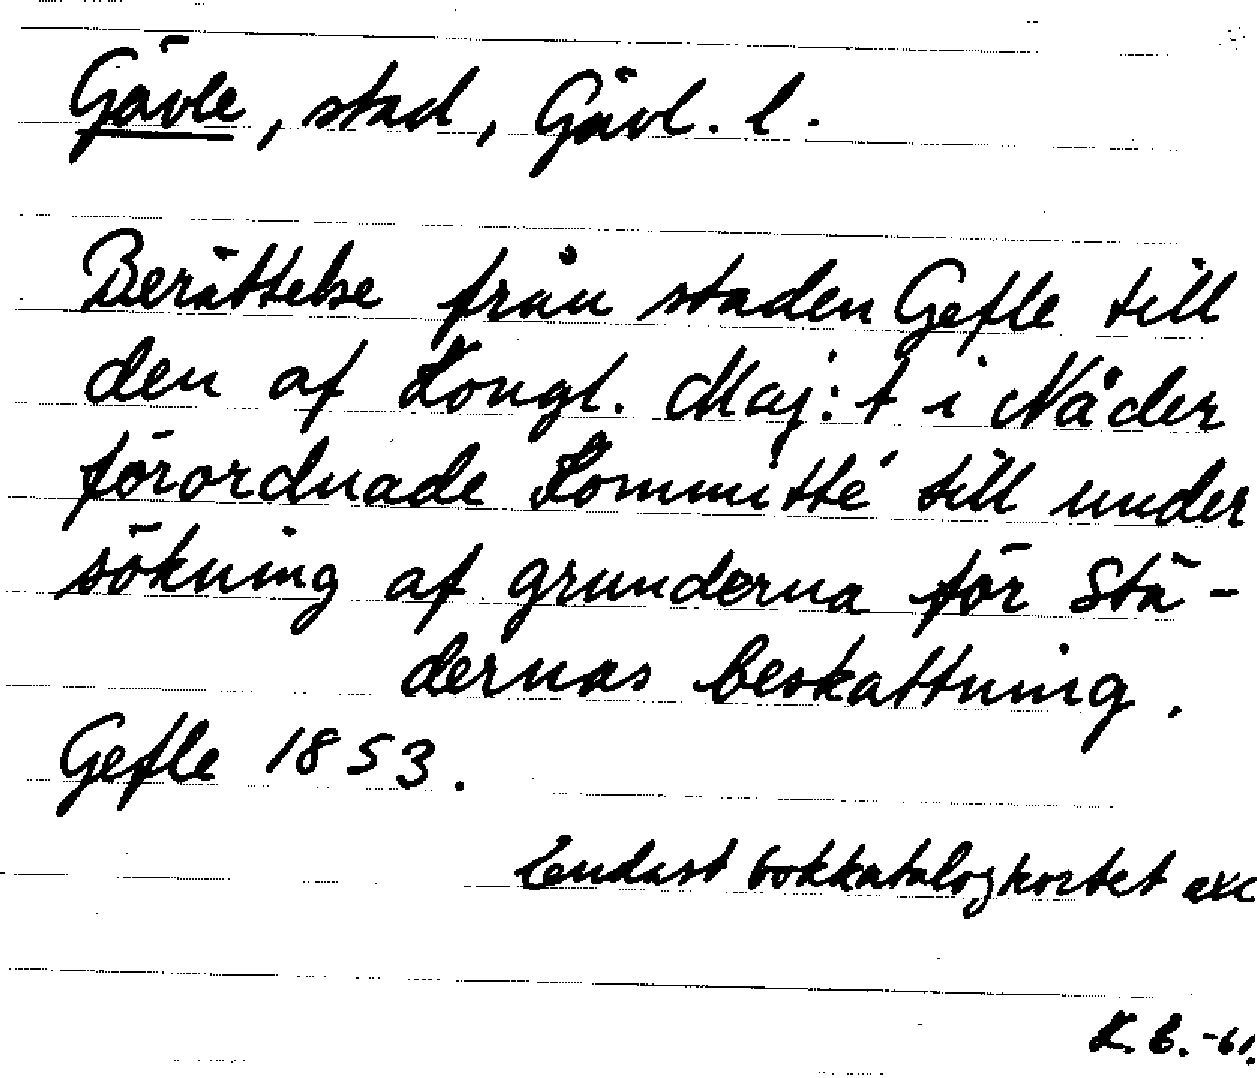 Gävle, stad, Gävl. l.
Berättelse från staden Gefle till
den af Kongl. Maj:t i Nåder
förordnade Kommitté till under
sökning af grunderna för Stä-
dernas beskattning.
Gefle 1853.
Endast bokkatalogkortet exc
K. B. -61.